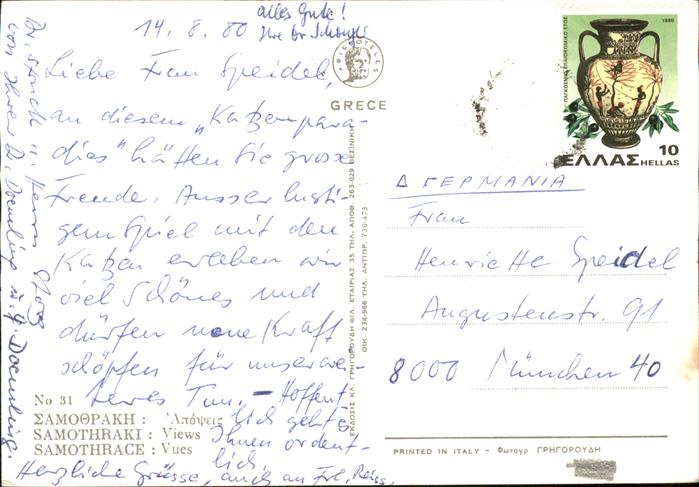 14.8.80
Alles Gute!
Ihre
Liebe Frau Speidel,
an diesem „Katzenpara-
dies" hätten Sie grosse
Freude. Ausser lusti-
gem Spiel mit den
Katzen erleben wir
viel Schönes und
dürfen neue Kraft
schöpfen für unser wei-
teres Tun. – Hoffent-
lich geht's
Ihnen ordent-
lich.
Herzliche Grüsse, auch an Frl. Reiss,
Dr. u. Herrn
von Ihrer D. Doemling u. G. Doemling.
No 31
ΣΑΜΟΘΡΑΚΗ : Ἀπόψεις
SAMOTHRAKI : Views
SAMOTHRACE : Vues
ARISTOTELES
GRECE
ΕΚΔΟΣΙΣ ΚΛ. ΓΡΗΓΟΡΟΥΔΗ ΦΙΛ. ΕΤΑΙΡΙΑΣ 35 ΤΗΛ. ΑΠΟΘ. 263.029 ΘΕΣ/ΝΙΚΗ
ΟΙΚ. 234-966 ΤΗΛ. ΑΝΤΙΠΡ. 730-473
ΠΑΓΚΟΣΜΙΟ ΕΛΑΙΟΚΟΜΙΚΟ ΕΤΟΣ
1980
10
ΕΛΛΑΣ HELLAS
Δ ΓΕΡΜΑΝΙΑ
Frau
Henriette Speidel
Augustenstr. 91
8000 München 40
PRINTED IN ITALY - Φωτογρ ΓΡΗΓΟΡΟΥΔΗ